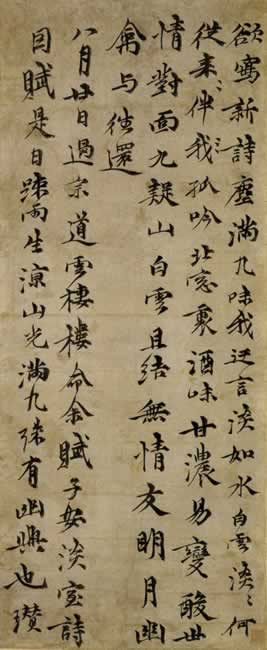 欲寫新詩塵滿几味我近言淡如水白雲淡〻何
從來伴我孤吟北窓裏酒味甘濃易變酸世
情對面九疑山白雲且結無情友明月幽
禽与往還
八月廿日過宗道雲棲樓命余賦子安淡室詩
因賦是日疎雨生涼山光滿几殊有幽興也瓚